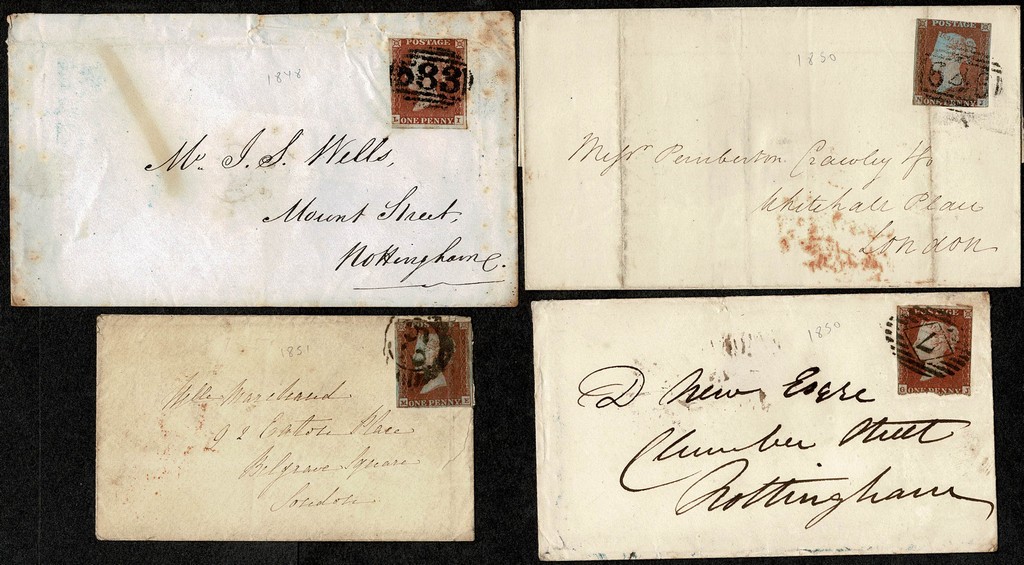 1848
POSTAGE
683
L I
ONE PENNY
Mr. J. S. Wells,
Mount Street
Nottingham.
1850
POSTAGE
ONE PENNY
Messrs Pemberton Crawley &
Whitehall Place
London
1851
ONE PENNY
92 Place
Belgrave Square
London
1850
G J
ONE PENNY
D New Esqre
Clumber Street
Nottingham